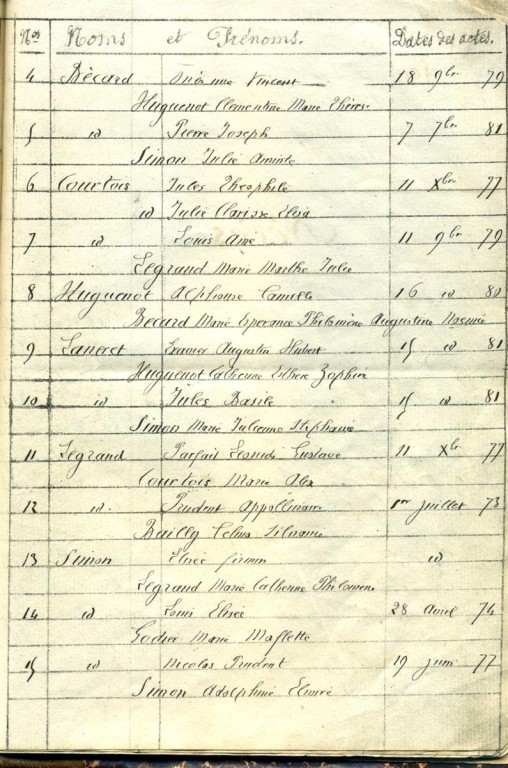 Nos Noms et Prénoms. Dates des actes.
4 Bécard Vincent 18 9bre 79
Huguenot Clementine Marie Thérèse
5 id Pierre Joseph 7 7bre 81
Simon Julie
6 Courtois Jules Théophile 11 Xbre 77
id Julie Clarisse Elisa
7 id Louis Amé 11 9bre 79
Legrand Marie Marthe Julie
8 Huguenot Alphonse Camille 16 id 80
Becard Marie Esperance Philomène Augustine
9 Augustin Hubert 15 id 81
Huguenot Catherine Zéphire
10 id Jules Basile 15 id 81
Simon Marie Julienne Stephanie
11 Legrand Parfait Leonide Gustave 11 Xbre 77
Courtois Marie Alix
12 id. Prudent Appollinaire 1er Juillet 73
Bailly Silvanie
13 Simon Firmin id
Legrand Marie Catherine Philomène
14 id Louis Elisée 28 Avril 74
Godier Marie
15 id Nicolas Prudent 19 Juin 77
Simon Adolphine Elmire